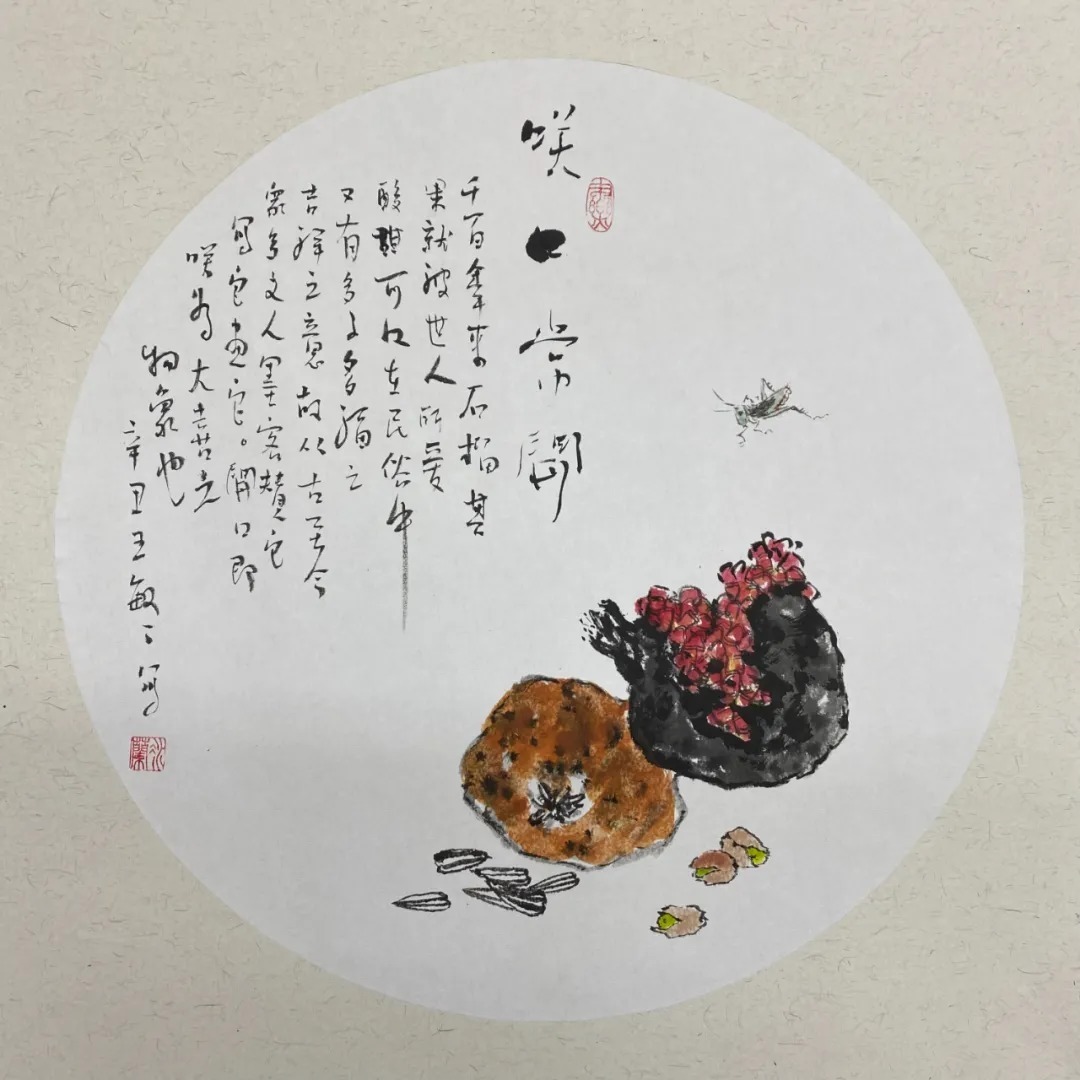 咲口常開
千百年来石榴其
果就被世人所爱
酸甜可口在民俗中
又有多子多福之
吉祥之意故从古至今
众多文人墨客赞它
写它画它。開口即
咲为大吉
物象也
辛丑王敏之写